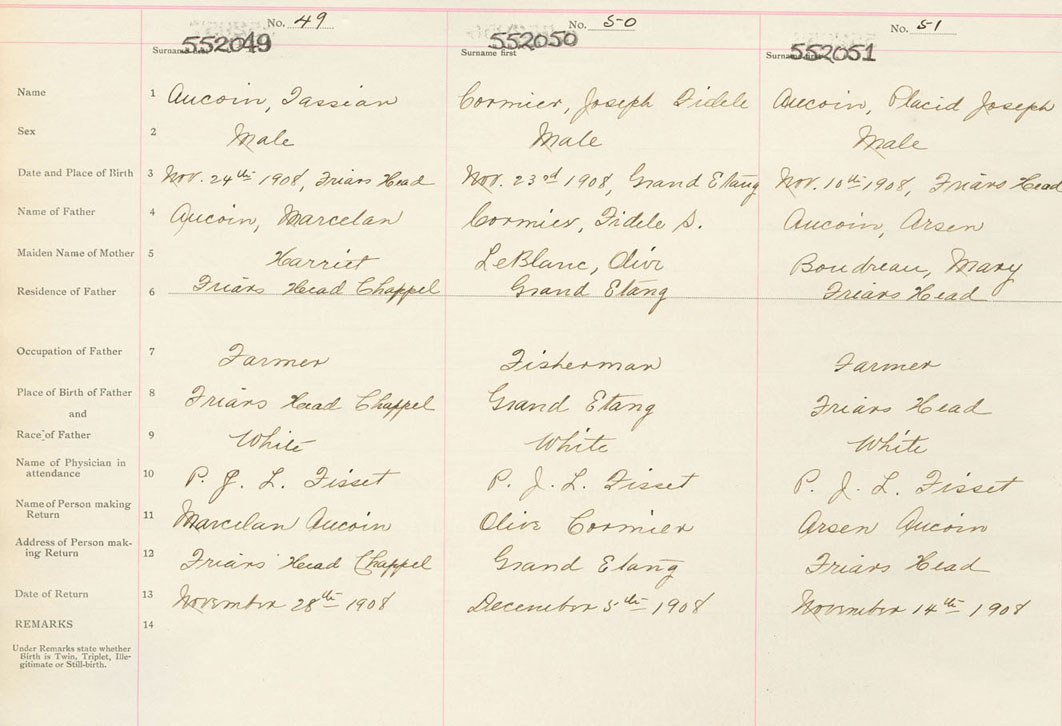 No. 49 No. 50 No. 51
552049 552050 552051
Surname first Surname first Surname first
Name 1 Aucoin, Tassian Cormier, Joseph Fidele Aucoin, Placid Joseph
Sex 2 Male Male Male
Date and Place of Birth 3 Nov. 24th 1908, Friars Head Nov. 23rd 1908, Grand Etang Nov. 10th 1908, Friars Head
Name of Father 4 Aucoin, Marcelan Cormier, Fidele S. Aucoin, Arsen
Maiden Name of Mother 5 Harriet LeBlanc, Olive Boudreau, Mary
Residence of Father 6 Friars Head Chappel Grand Etang Friars Head
Occupation of Father 7 Farmer Fisherman Farmer
Place of Birth of Father 8 Friars Head Chappel Grand Etang Friars Head
and
Race of Father 9 White White White
Name of Physician in
attendance 10 P. J. L. Fisset P. J. L. Fisset P. J. L. Fisset
Name of Person making
Return 11 Marcelan Aucoin Olive Cormier Arsen Aucoin
Address of Person mak-
ing Return 12 Friars Head Chappel Grand Etang Friars Head
Date of Return 13 November 28th 1908 December 5th 1908 November 14th 1908
REMARKS 14
Under Remarks state whether
Birth is Twin, Triplet, Ille-
gitimate or Still-birth.